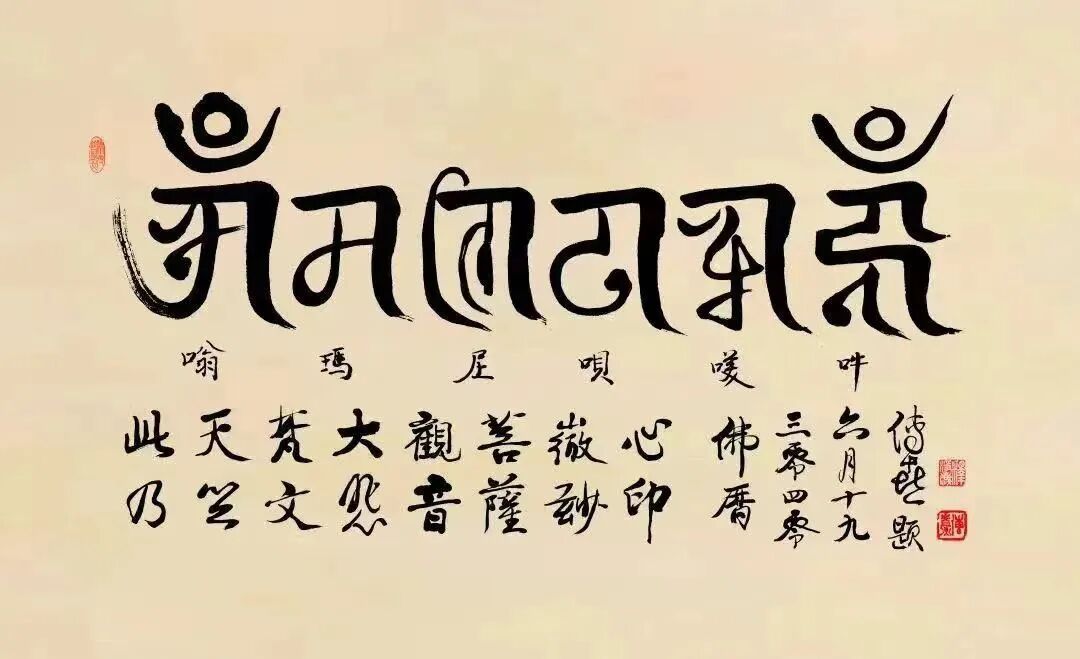 𑖌𑖼 𑖦 𑖜𑖰 𑖢 𑖟𑖿𑖦𑖸 𑖮𑖳𑖽
嗡 瑪 尼 唄 嘜 吽
此乃
天竺
梵文
大悲
觀音
菩薩
微妙
心印
佛曆
三零四零
六月十九
傳喜題